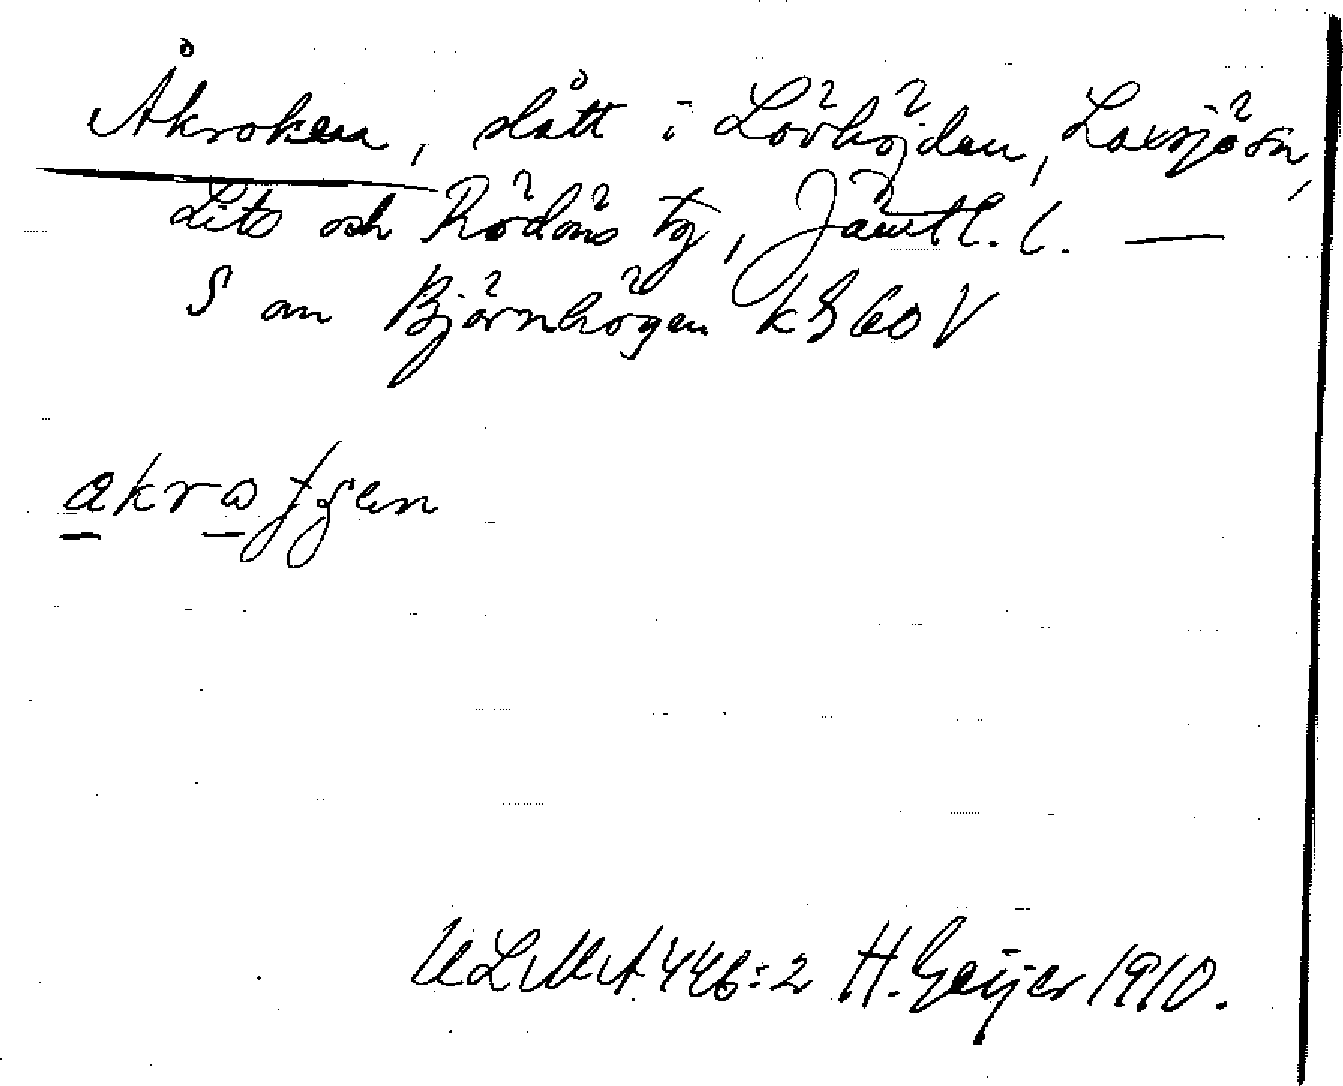 Åkroken, slått i Lövhöjden, Laxsjön,
Lits och Rödöns tg, Jämtl. l. —
S om Björnhögen k§60V
akrofgen
ULMA 446:2 H. Geijer 1910.